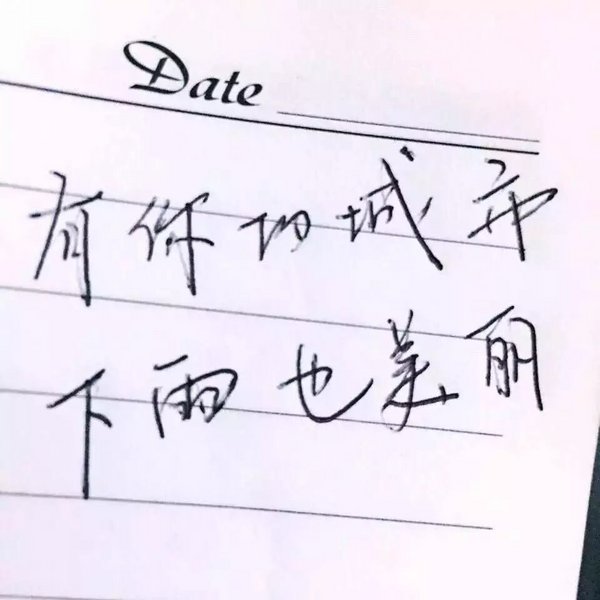 Date
有你的城市
下雨也美丽